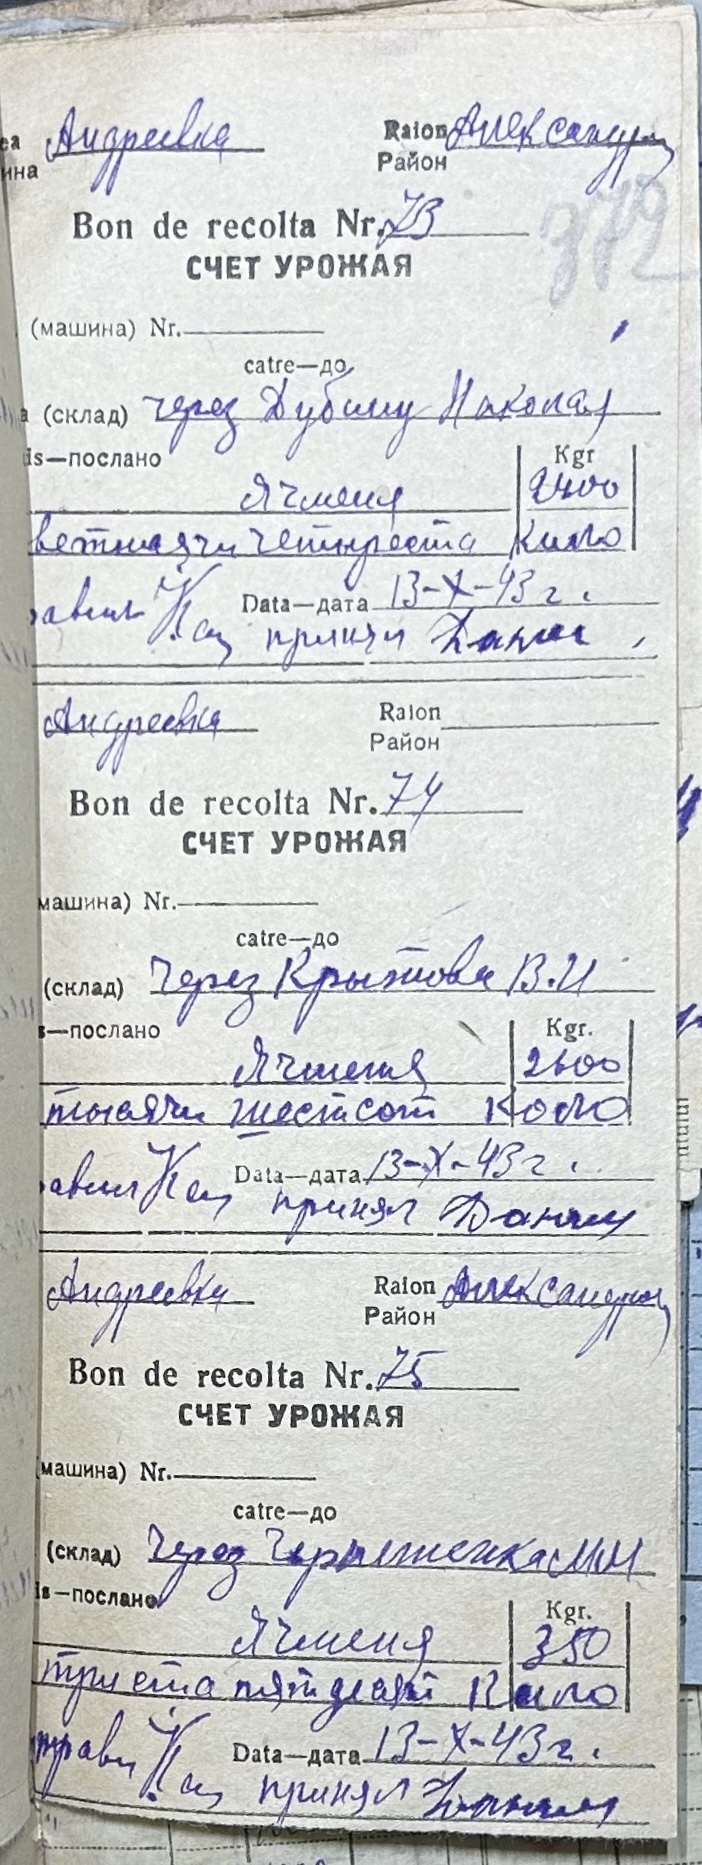 Андреевка Raion Александр
ина Район
Bon de recolta Nr. 73
372
СЧЕТ УРОЖАЯ
(машина) Nr.
catre—до
(склад) через Дубину Николая
is—послано Kgr
Ячменя 2400
ветысячи четыреста кило
Data—дата 13-X-43 г.
принял
Андреевка Raion
Район
Bon de recolta Nr. 74
СЧЕТ УРОЖАЯ
машина) Nr.
catre—до
(склад) через В.И
s—послано Kgr.
Ячменя 2600
тысячи шестсот Кило
авил Data—дата 13-X-43 г.
принял
Андреевка Raion Александр
Район
Bon de recolta Nr. 75
СЧЕТ УРОЖАЯ
(машина) Nr.
catre—до
(склад) через
is—послано Kgr.
Ячменя 350
триста пятдесят Кило
Data—дата 13-X-43 г.
принял